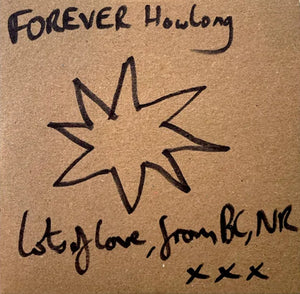 FOREVER Howlong
lots of love, from BC, NR
x x x